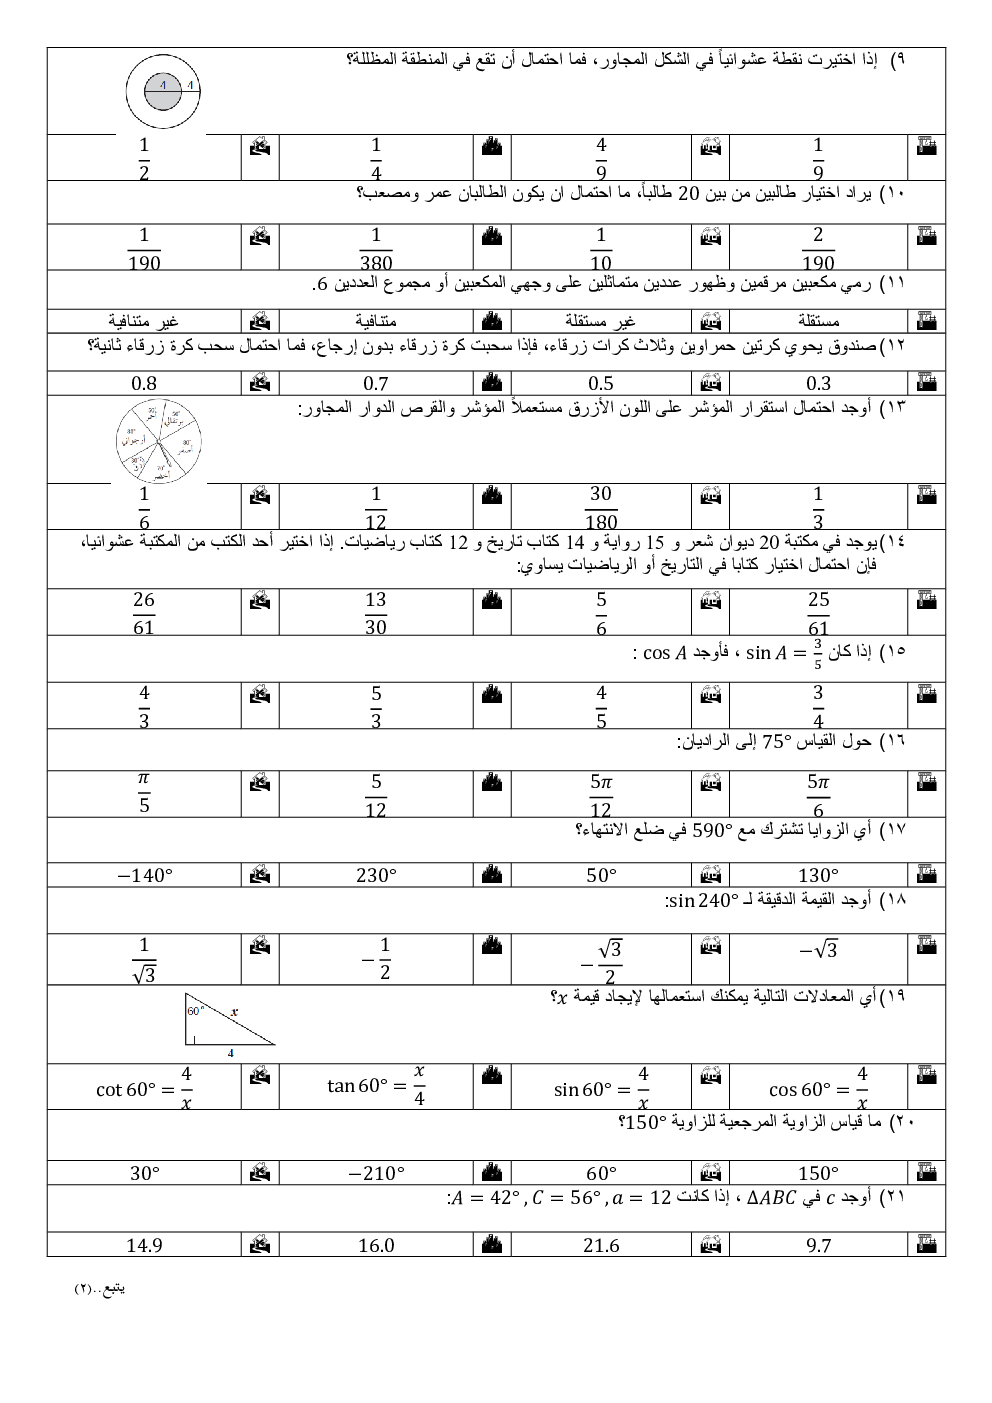 ٩) إذا اختيرت نقطة عشوائياً في الشكل المجاور، فما احتمال أن تقع في المنطقة المظللة؟
4 4
1/9 4/9 1/4 1/2
١٠) يراد اختيار طالبين من بين 20 طالباً، ما احتمال ان يكون الطالبان عمر ومصعب؟
2/190 1/10 1/380 1/190
١١) رمي مكعبين مرقمين وظهور عددين متماثلين على وجهي المكعبين أو مجموع العددين 6.
مستقلة غير مستقلة متنافية غير متنافية
١٢) صندوق يحوي كرتين حمراوين وثلاث كرات زرقاء، فإذا سحبت كرة زرقاء بدون إرجاع، فما احتمال سحب كرة زرقاء ثانية؟
0.3 0.5 0.7 0.8
١٣) أوجد احتمال استقرار المؤشر على اللون الأزرق مستعملاً المؤشر والقرص الدوار المجاور:
50° برتقالي
80°
أرجواني
80°
30°
70°
أخضر
1/3 30/180 1/12 1/6
١٤) يوجد في مكتبة 20 ديوان شعر و 15 رواية و 14 كتاب تاريخ و 12 كتاب رياضيات. إذا اختير أحد الكتب من المكتبة عشوائيا،
فإن احتمال اختيار كتابا في التاريخ أو الرياضيات يساوي:
25/61 5/6 13/30 26/61
١٥) إذا كان sin A = 3/5 ، فأوجد cos A :
3/4 4/5 5/3 4/3
١٦) حول القياس 75° إلى الراديان:
5π/6 5π/12 5/12 π/5
١٧) أي الزوايا تشترك مع 590° في ضلع الانتهاء؟
130° 50° 230° −140°
١٨) أوجد القيمة الدقيقة لـ sin 240°:
−√3 −√3/2 −1/2 1/√3
١٩) أي المعادلات التالية يمكنك استعمالها لإيجاد قيمة x؟
60° x
4
cos 60° = 4/x sin 60° = 4/x tan 60° = x/4 cot 60° = 4/x
٢٠) ما قياس الزاوية المرجعية للزاوية 150°؟
150° 60° −210° 30°
٢١) أوجد c في ΔABC ، إذا كانت A = 42° , C = 56° , a = 12:
9.7 21.6 16.0 14.9
يتبع..(٢)